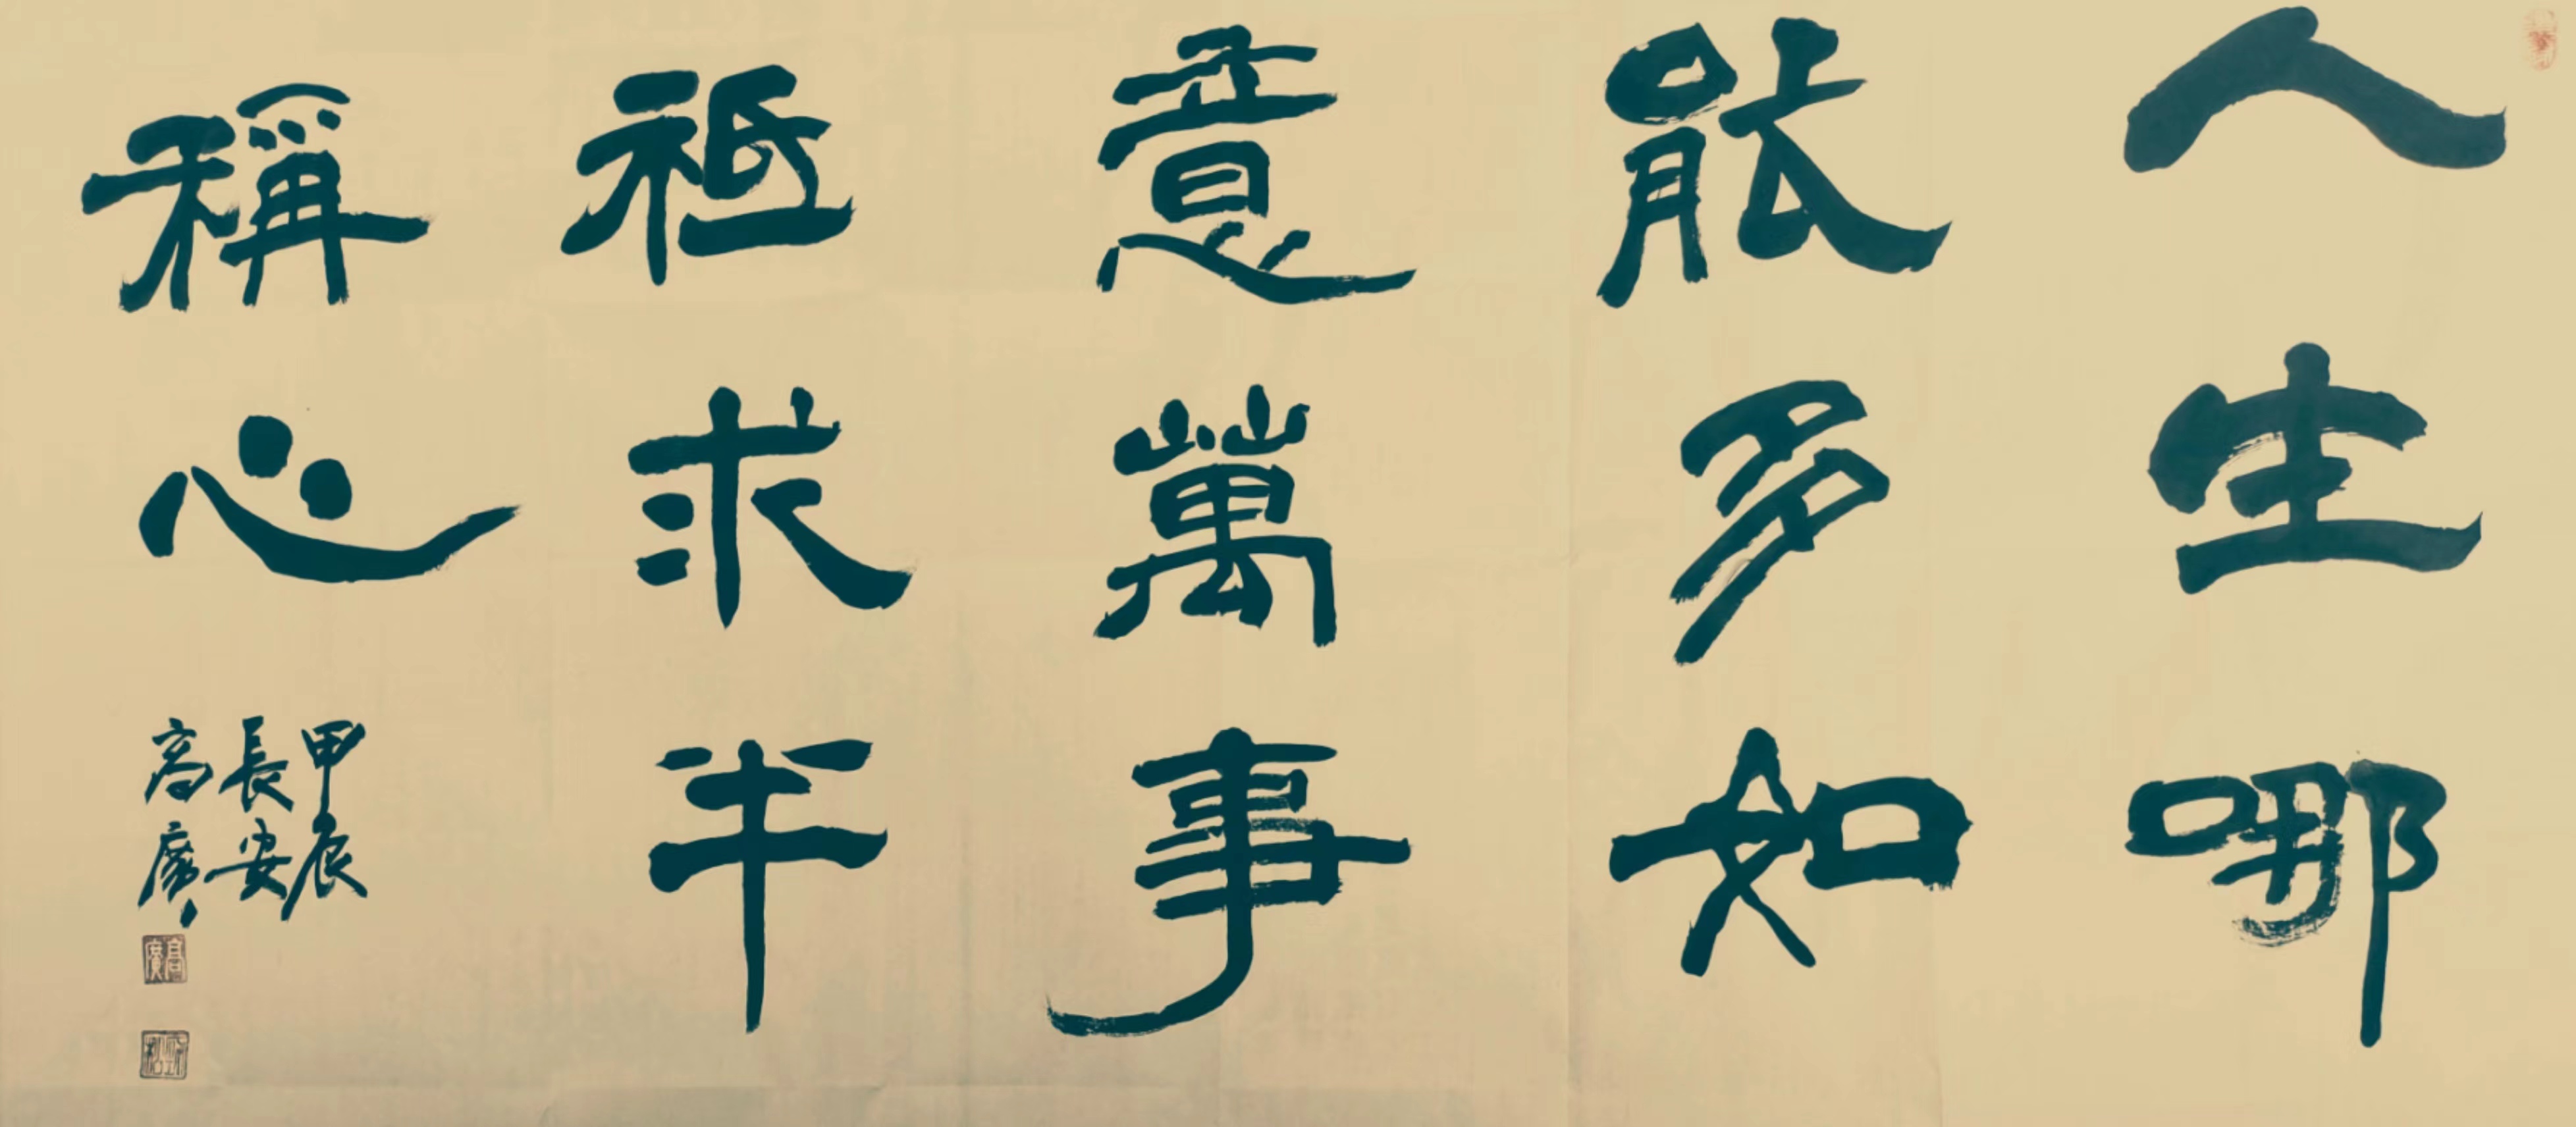 人生哪
能多如
意萬事
祗求半
稱心
甲辰
長安
高廣